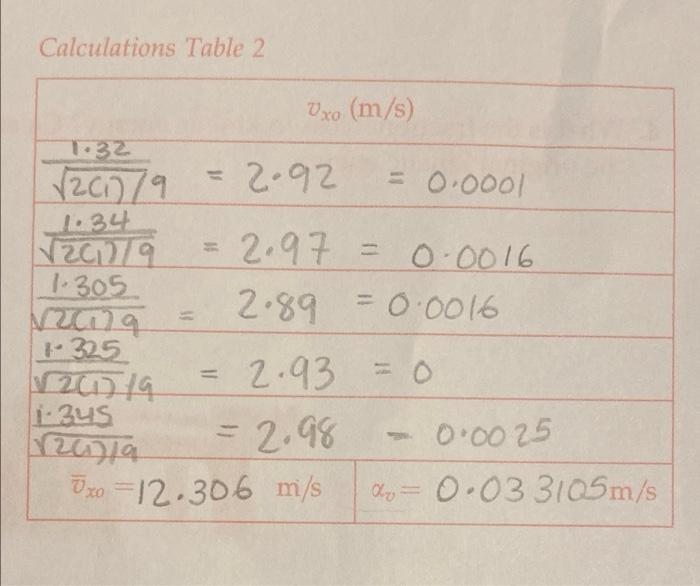 Calculations Table 2
v_xo (m/s)
1.32
√2(1)/9 = 2.92 = 0.0001
1.34
√2(1)/9 = 2.97 = 0.0016
1.305
√2(1)9 = 2.89 = 0.0016
1.325
√2(1)/9 = 2.93 = 0
1.345
√2(1)/9 = 2.98 - 0.0025
v̅_xo = 12.306 m/s α_v = 0.033105 m/s